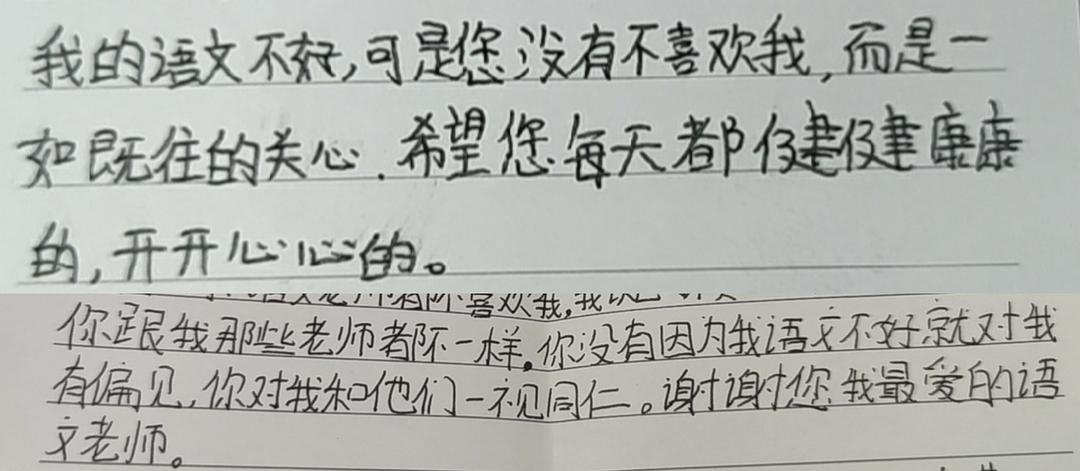 我的语文不好,可是您没有不喜欢我,而是一
如既往的关心.希望您每天都健健康康
的,开开心心的。
老师都不喜欢我,我
你跟我那些老师都不一样.你没有因为我语文不好就对我
有偏见,你对我和他们一视同仁。谢谢您我最爱的语
文老师。